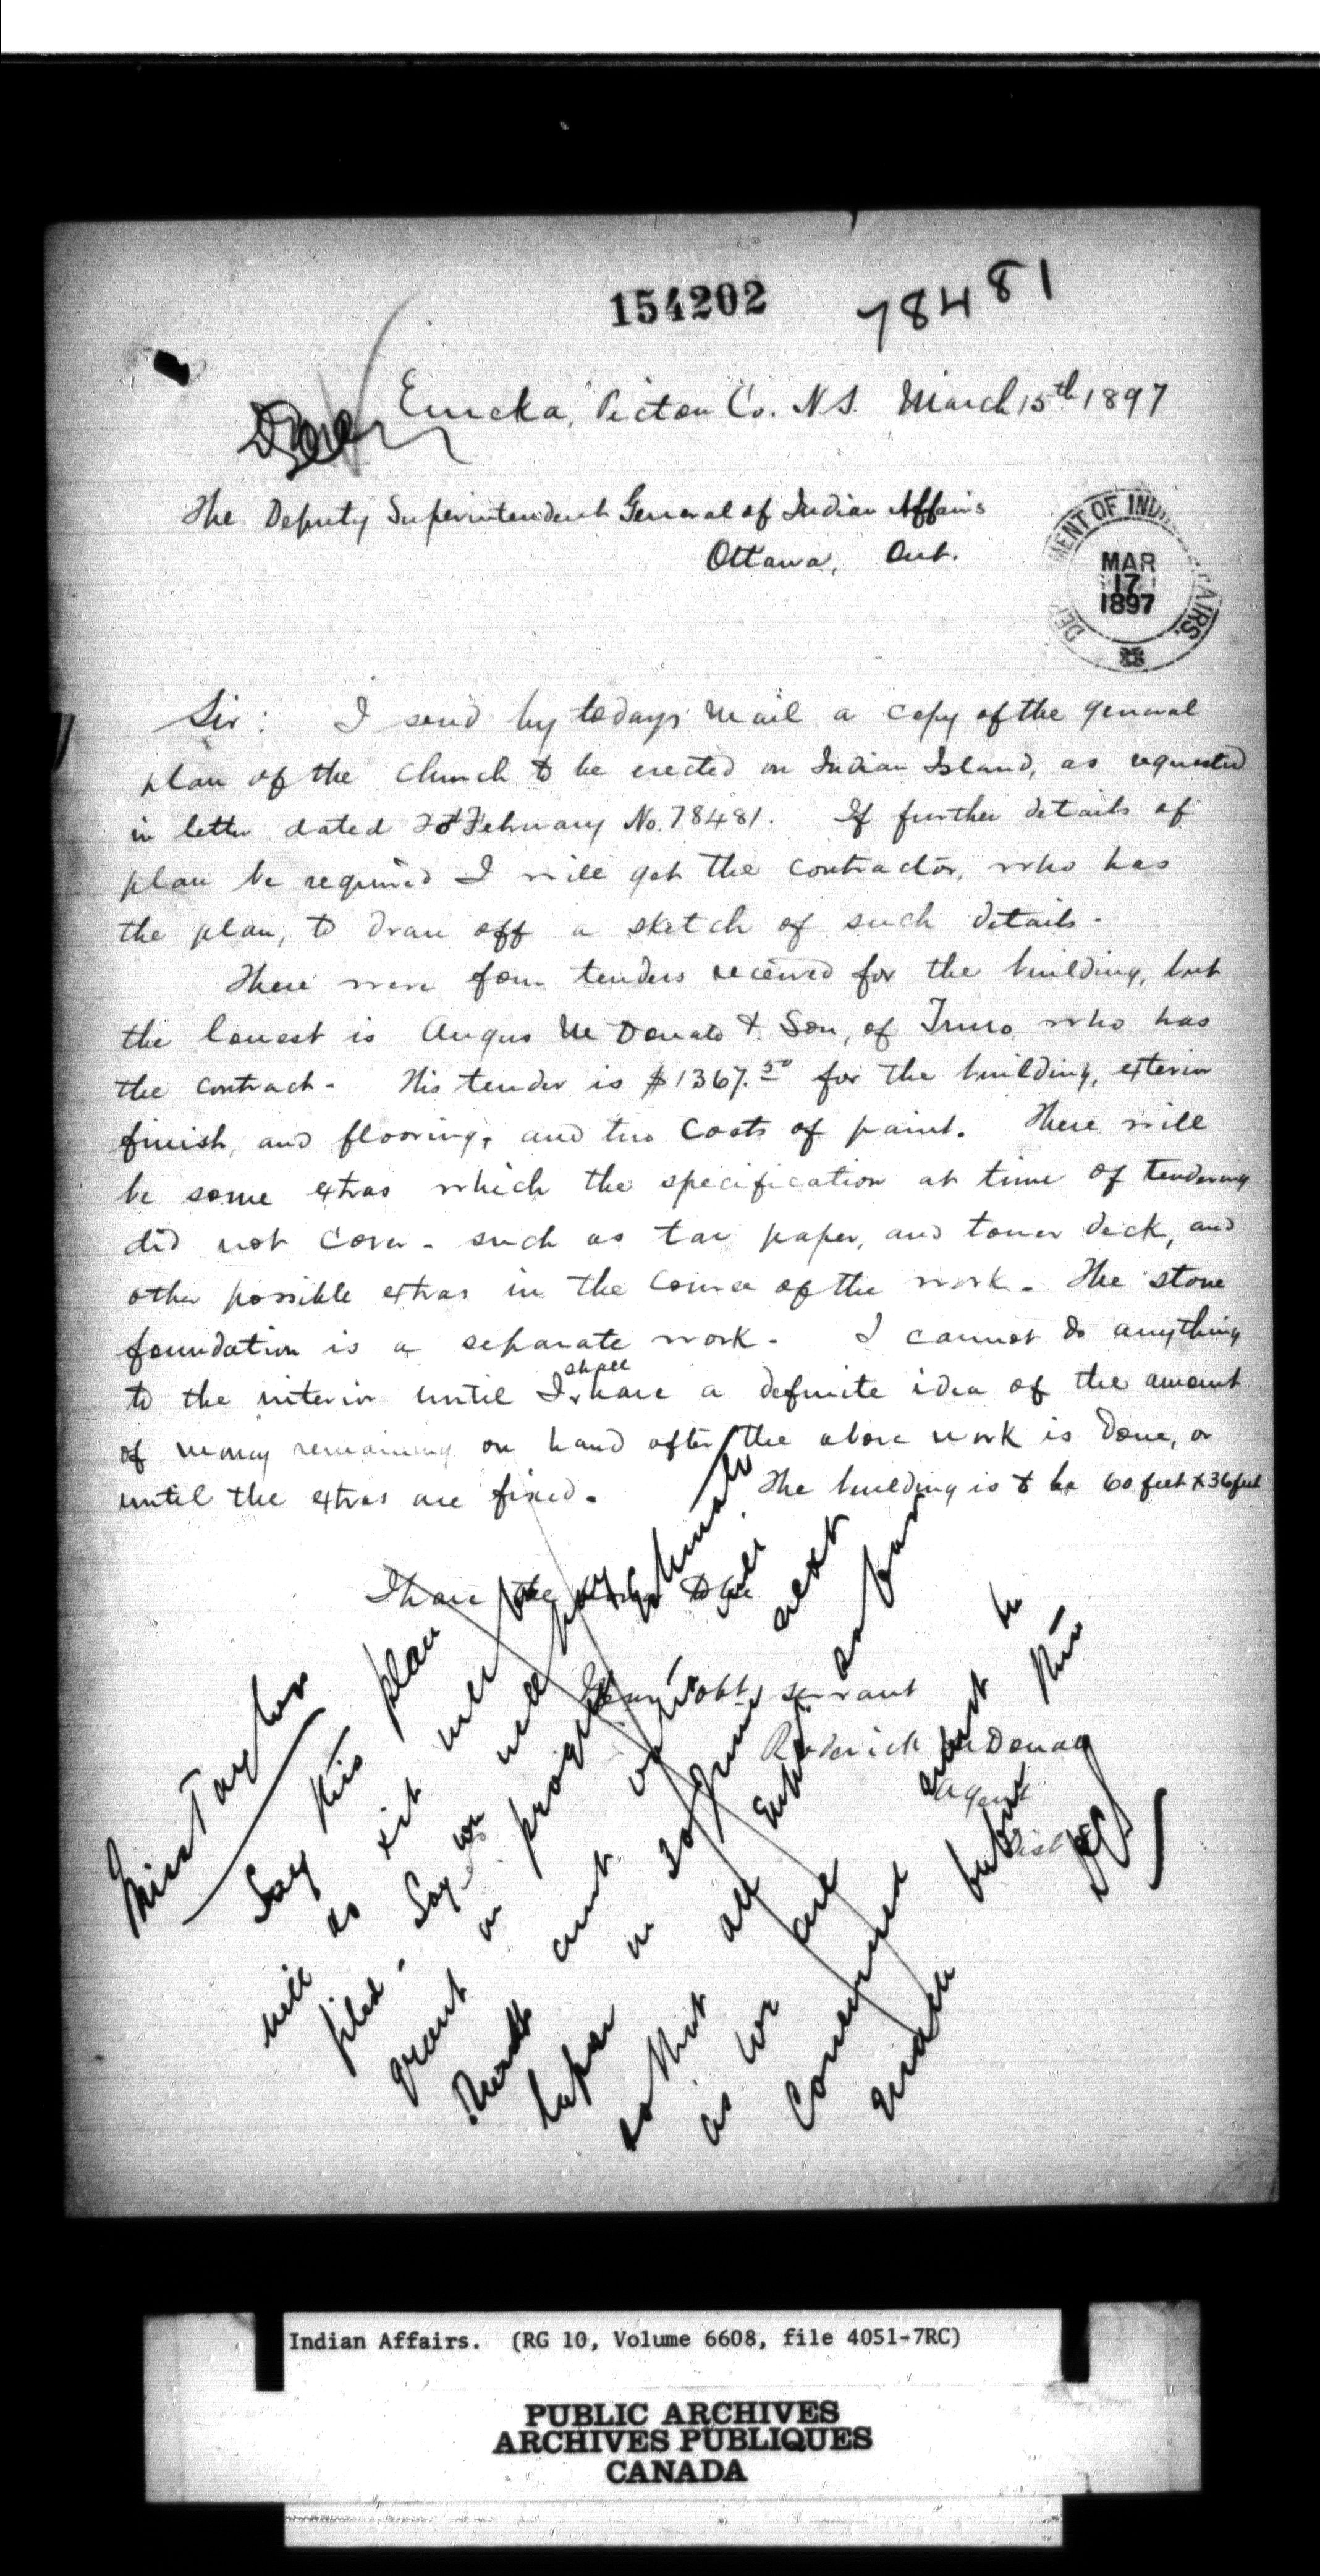 154202 78481
Eureka, Pictou Co. N.S. March 15th 1897
The Deputy Superintendent General of Indian Affairs
Ottawa, Ont.
DEPARTMENT OF INDIAN AFFAIRS.
MAR
17
1897
Sir: I send by todays mail a copy of the general
plan of the church to be erected on Indian Island, as requested
in letter dated February No. 78481. If further details of
plan be required I will get the contractor, who has
the plan, to draw off a sketch of such details.
There were four tenders received for the building, but
the lowest is Angus McDonald & Son, of Truro who has
the contract. His tender is $1367.50 for the building, exterior
finish, and flooring, and two coats of paint. There will
be some extras which the specification at time of tendering
did not cover - such as tar paper, and tower deck, and
other possible extras in the course of the work. The stone
foundation is a separate work. I cannot do anything
to the interior until I shall have a definite idea of the amount
of money remaining on hand after the above work is done, or
until the extras are fixed. The building is to be 60 feet x 36 feet
I have the honor to be
Sir
Your obt. servant
Roderick McDonald
Agent
Miss Taylor
Say this plan
will do & it will be
filed - Say we will pay
grant on progress estimate
but vote will
lapse on 30 June next
so that all expenditure so far
as we are
concerned must be
made before then
Indian Affairs. (RG 10, Volume 6608, file 4051-7RC)
PUBLIC ARCHIVES
ARCHIVES PUBLIQUES
CANADA